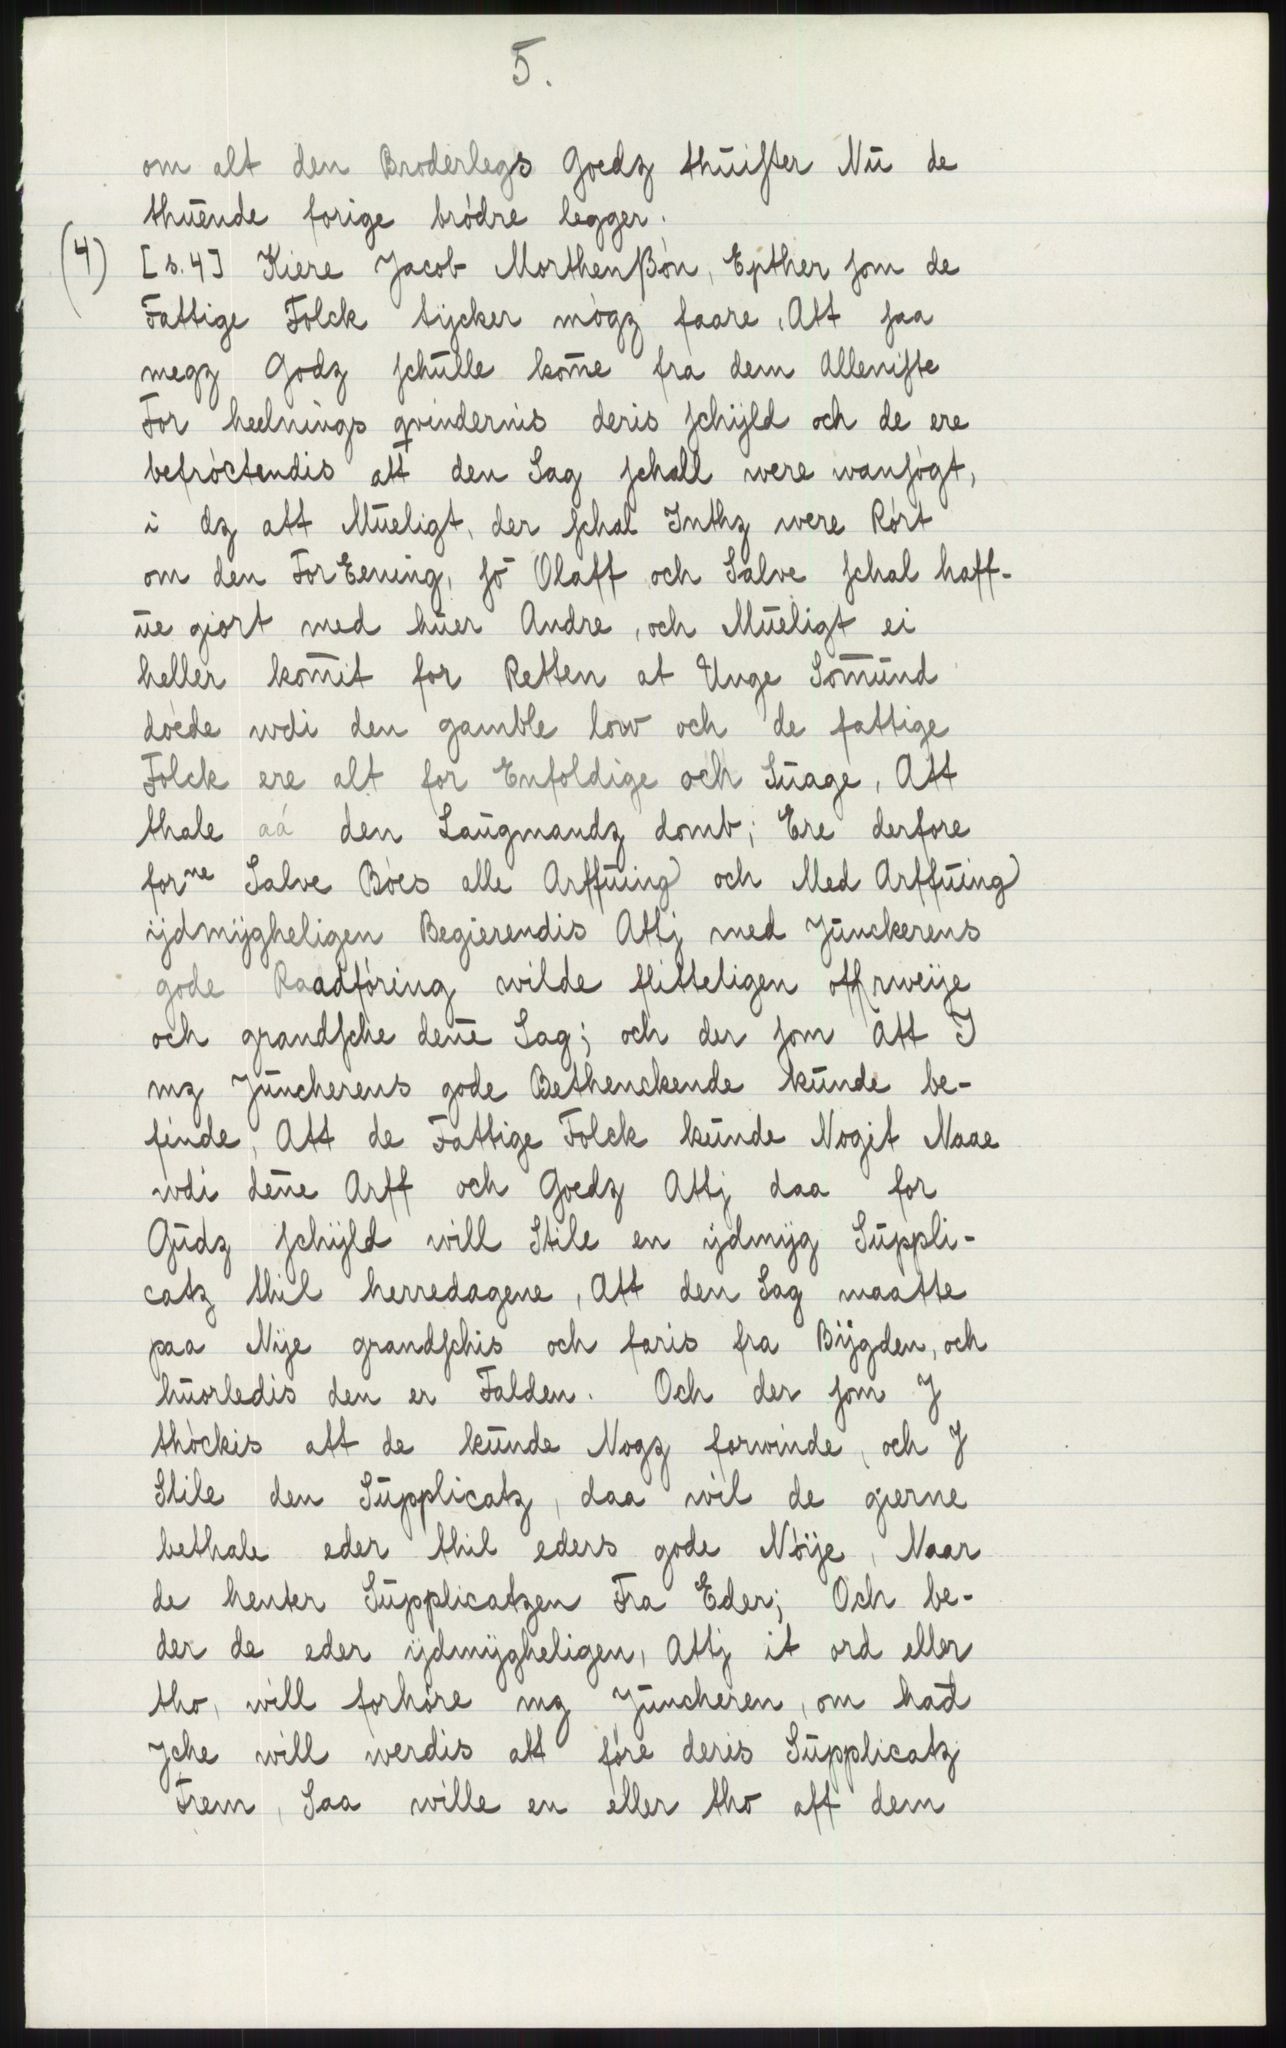 5.
om alt den Broderlegs Goedz thuister Nu de
thuende forige brödre legger.
(4) [s. 4] Kiere Jacob Morthenßön, Epther som de
Fattige Folck tijcker mögz faare, Att saa
megz Godz schulle kom̄e fra dem Alleniste
For heelnings qvindernis deris schijld och de ere
befröctendis att den Sag schall were wansögt,
i dz att Mueligt, der schal Inthz were Rört
om den ForEening, sō Olaff och Salve schal haff-
ue giort med huer Andre, och Mueligt ei
heller kom̄it for Retten at Unge Som̄und
döede wdi den gamble low och de fattige
Folck ere alt for Enfoldige och Suage, Att
thale aá den Laugmandz domb; Ere derfore
forne Salve Böes alle Arffuing och Med Arffuing
ijdmijgheligen Begierendis Attj med Junckerens
gode Raadföring wilde flitteligen offrweije
och grandsche den̄e Sag; och der som Att I
mz Juncherens gode Bethenckende kunde be-
finde, Att de Fattige Folck kunde Nogit Naae
wdi den̄e Arff och Goedz Attj daa for
Gudz schijld will Stile en ijdmijg Suppli-
catz thil herredagene, Att den Sag maatte
paa Nije grandschis och faris fra Bijgden, och
huorledis den er Falden. Och der som J
thöckis att de kunde Nogz forwinde, och J
Stile den Supplicatz, daa wil de gierne
bethale eder thil eders gode Nöije, Naar
de henter Supplicatzen Fra Eder; Och be-
der de eder ijdmijgheligen, Attj it ord eller
tho, will forhöre mz Juncheren, om had
Jche will werdis att före deris Supplicatz
Frem, Saa wille en eller tho aff dem